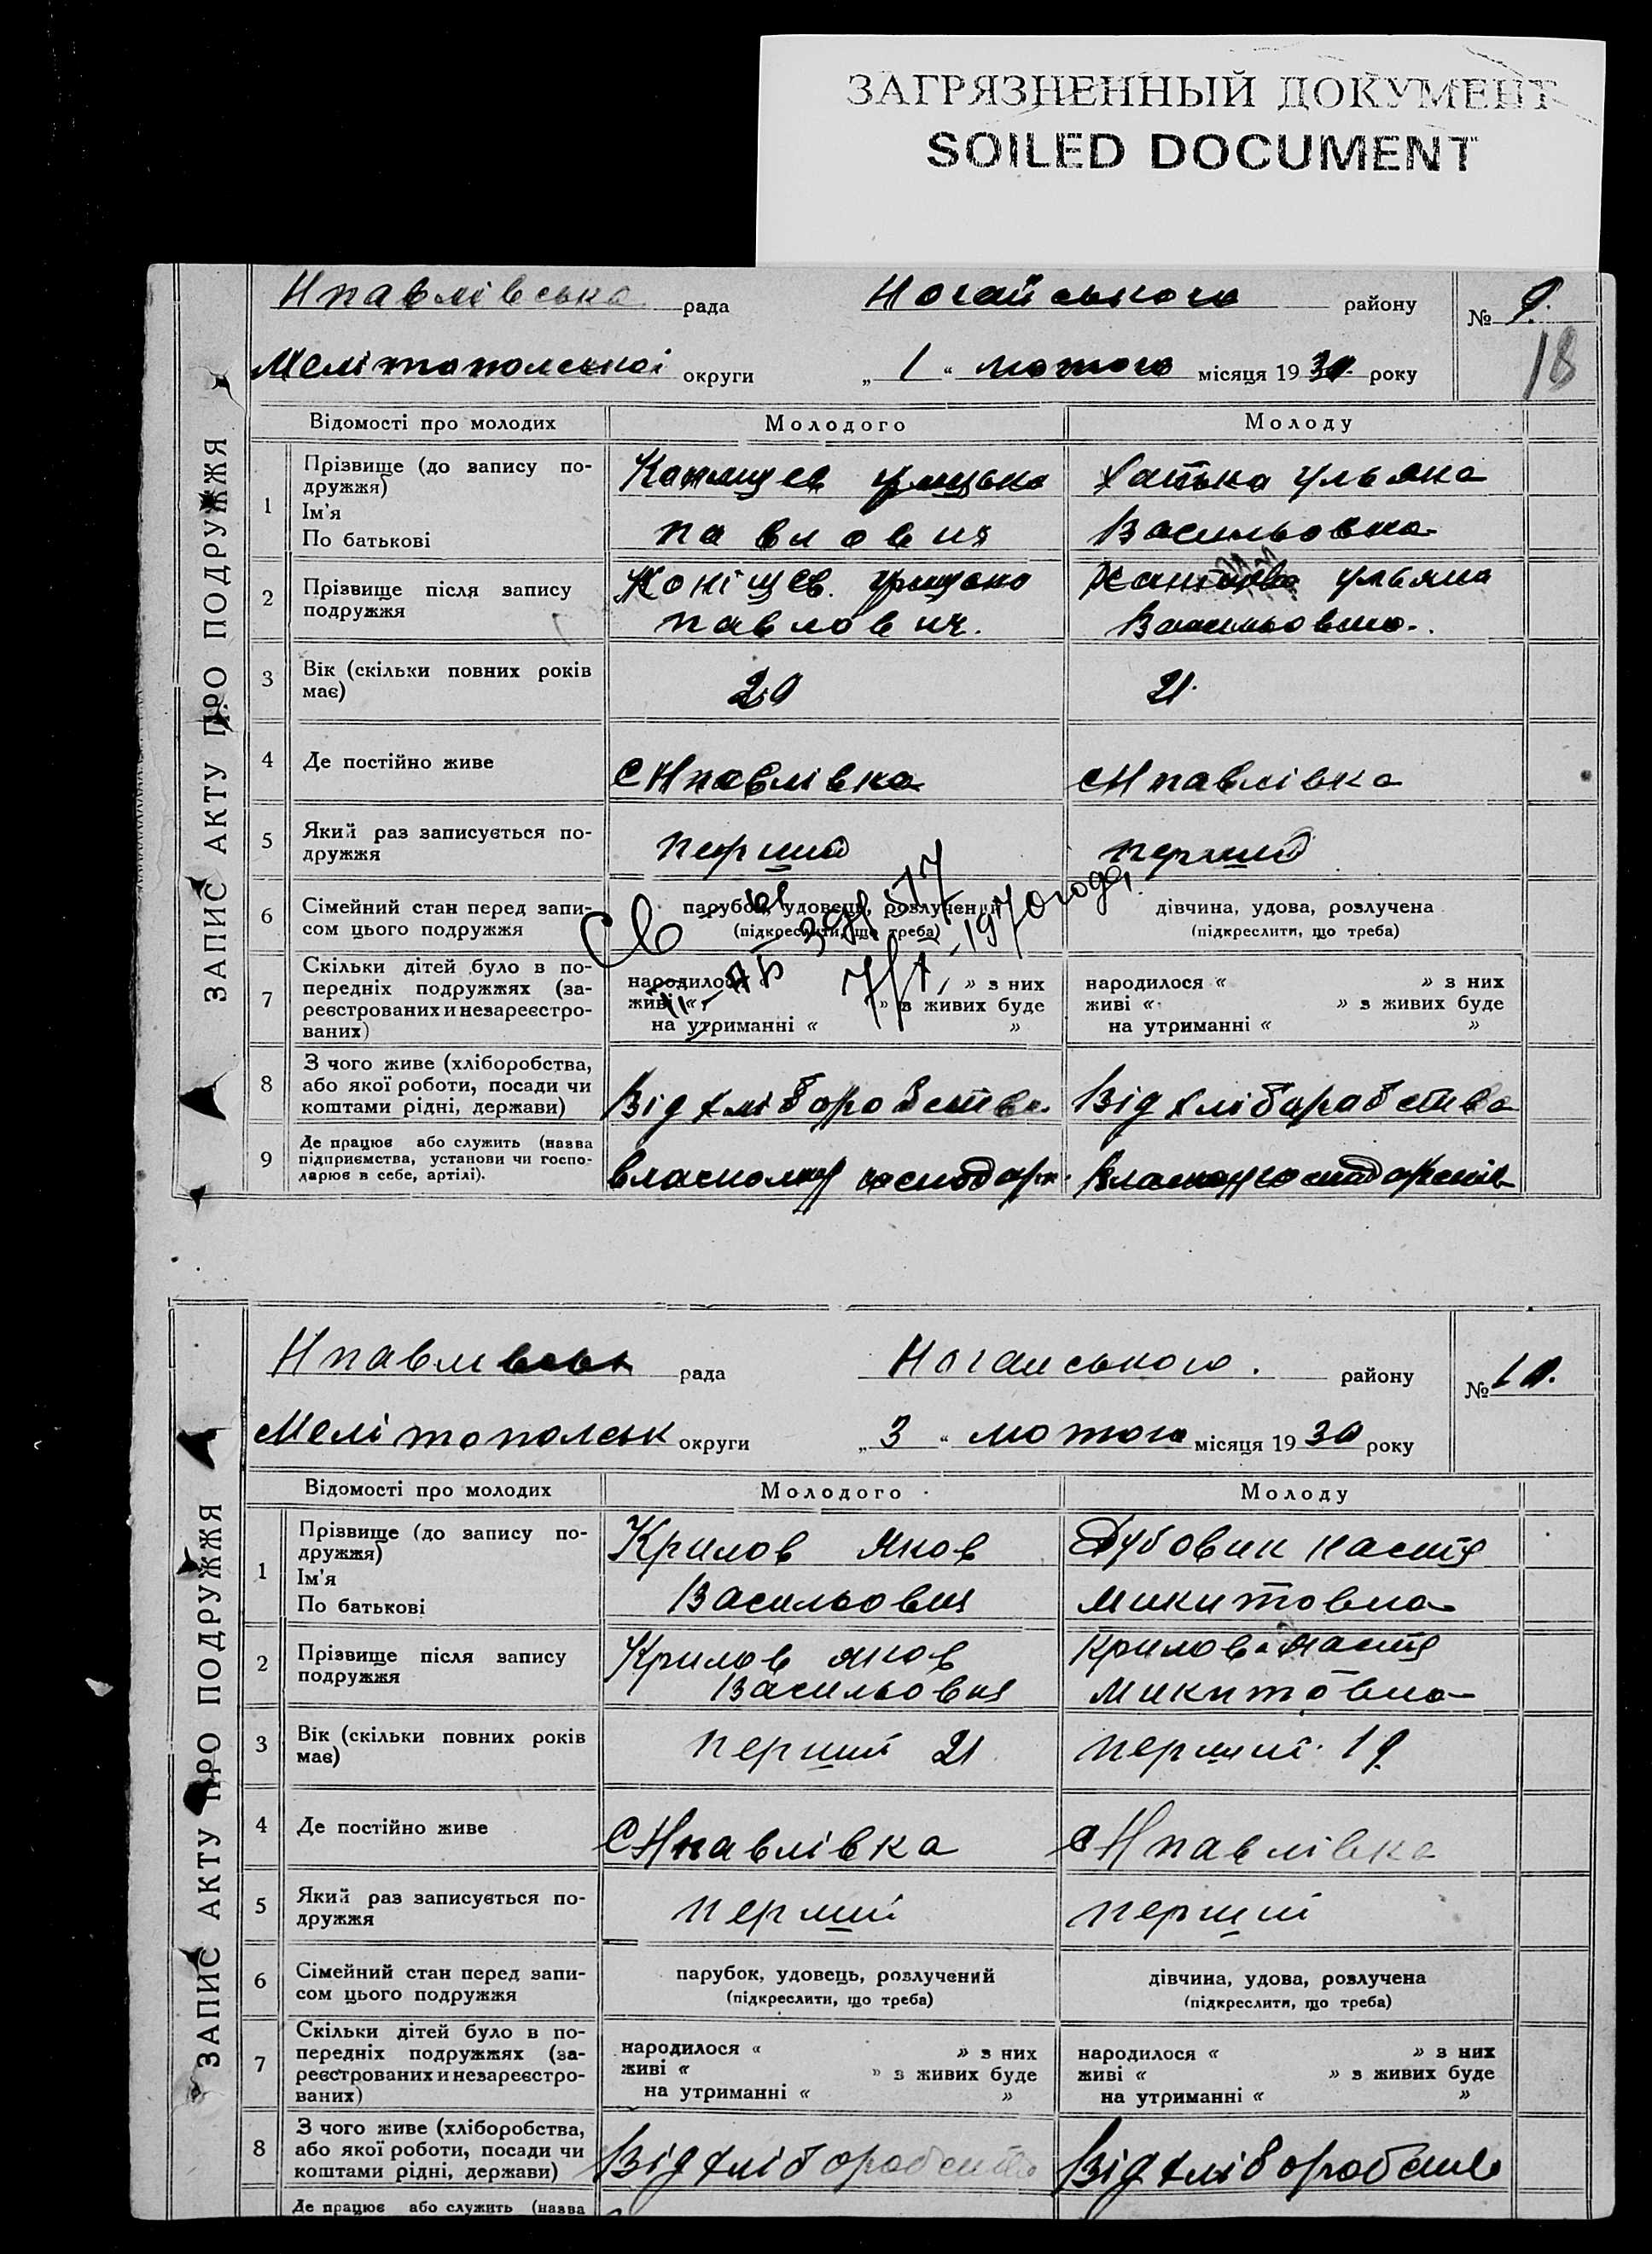 ЗАГРЯЗНЕННЫЙ ДОКУМЕНТ
SOILED DOCUMENT
Нпавлівська рада Ногайського району № 9.
18
Мелітопольської округи „ 1 “ лютого місяця 1930 року
ЗАПИС АКТУ ПРО ПОДРУЖЖЯ
Відомості про молодих Молодого Молоду
1 Прізвище (до запису подружжя)
Ім'я
По батькові
Павлович
Хатька Ульяна
Васильовна
2 Прізвище після запису подружжя
Конїщев. Грицько
Павлович.
Ульяна
Васильовна.
3 Вік (скільки повних років має) 20 21.
4 Де постійно живе с Нпавлівка с Нпавлівка
5 Який раз записується подружжя перший перший
6 Сімейний стан перед записом цього подружжя
парубок, удовець, розлучений
(підкреслити, що треба)
дівчина, удова, розлучена
(підкреслити, що треба)
Св
1970 года
7 Скільки дітей було в попередніх подружжях (зареєстрованих и незареєстрованих)
народилося « » з них
живі « » з живих буде
на утриманні « »
народилося « » з них
живі « » з живих буде
на утриманні « »
8 З чого живе (хліборобства, або якої роботи, посади чи коштами рідні, держави)
Від хліборобства
Від хліборобства
9 Де працює або служить (назва підприємства, установи чи господарює в себе, артілі).
ЗАПИС АКТУ ПРО ПОДРУЖЖЯ
рада Ногайського. району № 10.
Мелітопольськ округи „ 3 “ лютого місяця 1930 року
Відомості про молодих Молодого Молоду
1 Прізвище (до запису подружжя)
Ім'я
По батькові
Крилов Яков
Васильович
Дубовик Настя
Микитовна
2 Прізвище після запису подружжя
Крилов Яков
Васильович
Крилова Настя
Микитовна
3 Вік (скільки повних років має) перший 21 перший 19
4 Де постійно живе с Нпавлівка с Нпавлівка
5 Який раз записується подружжя перший перший
6 Сімейний стан перед записом цього подружжя
парубок, удовець, розлучений
(підкреслити, що треба)
дівчина, удова, розлучена
(підкреслити, що треба)
7 Скільки дітей було в попередніх подружжях (зареєстрованих и незареєстрованих)
народилося « » з них
живі « » з живих буде
на утриманні « »
народилося « » з них
живі « » з живих буде
на утриманні « »
8 З чого живе (хліборобства, або якої роботи, посади чи коштами рідні, держави)
Від хліборобства
Від хліборобства
Де працює або служить (назва